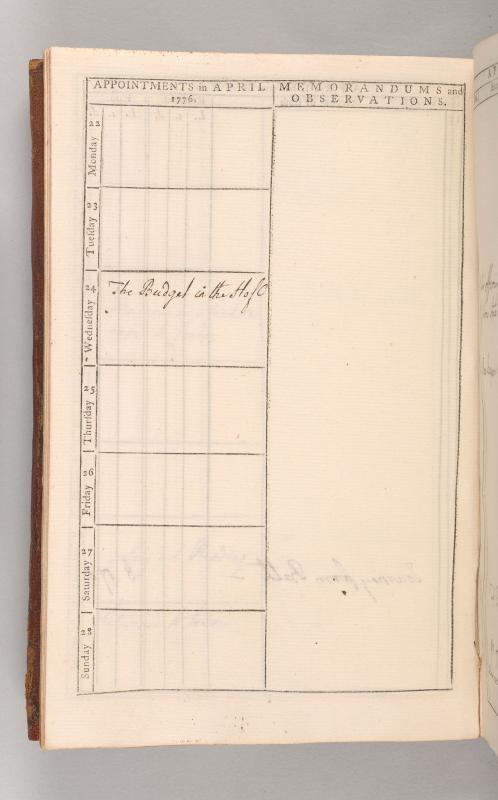 APPOINTMENTS in APRIL
1776.
MEMORANDUMS and
OBSERVATIONS.
22
Monday
23
Tueſday
24
Wedneſday
The Budget in the HofC
25
Thurſday
26
Friday
27
Saturday
28
Sunday